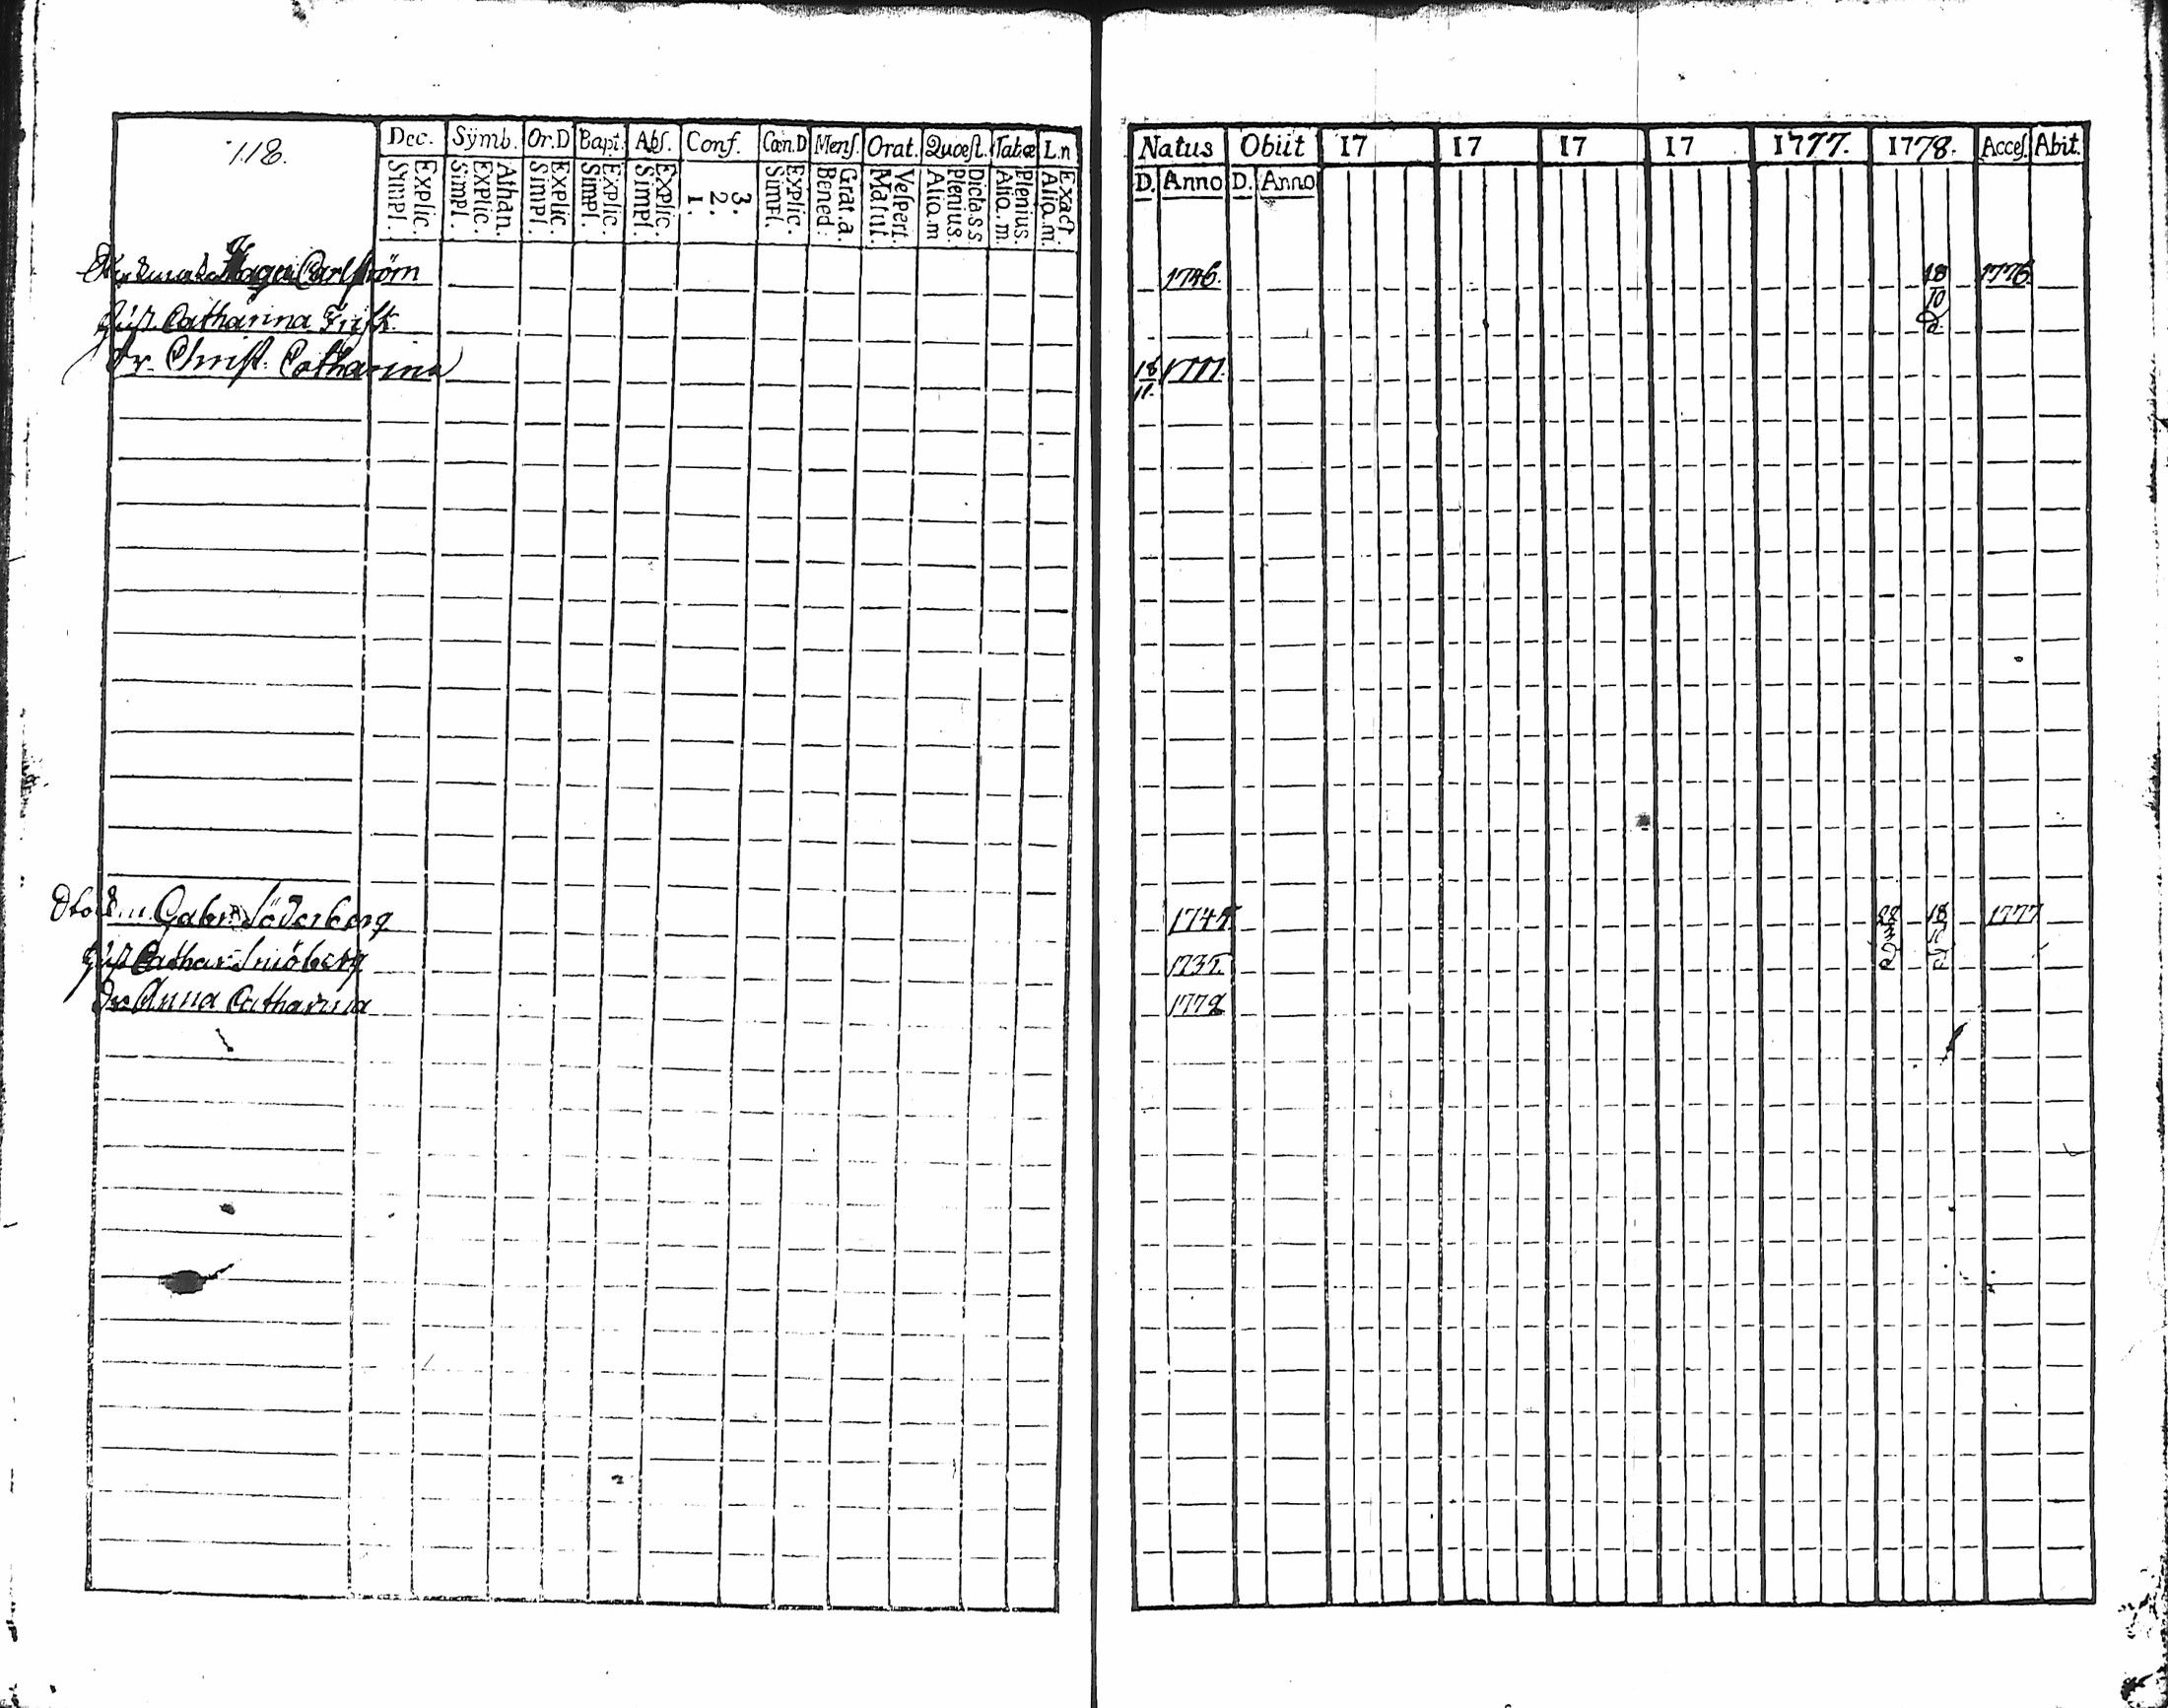 118.
Dec. Sÿmb. Or.D Bapt. Abſ. Conf. Cœn.D Menſ. Orat. Quœſt. Tab.œ L.n
Simpl. Explic. Simpl. Explic. Athan. Simpl. Explic. Simpl. Explic. Simpl. Explic. 1. 2. 3. Simpl. Explic. Bened. Grat.a. Matut. Veſpert. Aliq.m Plenius. Dicta.s s Aliq.m. Plenius. Aliq.m. Exact.
Carlſtröm
Huſt. Catharina Friſk.
dr. Chriſt. Catharina
Gabr. Söderberg
Huſt Cathar. Sniöberg
dr. Anna Catharina
Natus Obiit 17 17 17 17 1777. 1778. Acceſ. Abit.
D. Anno D. Anno
1746. 18/10 1776.
18/11. 1777.
1745 18/10 1777
1735.
1772